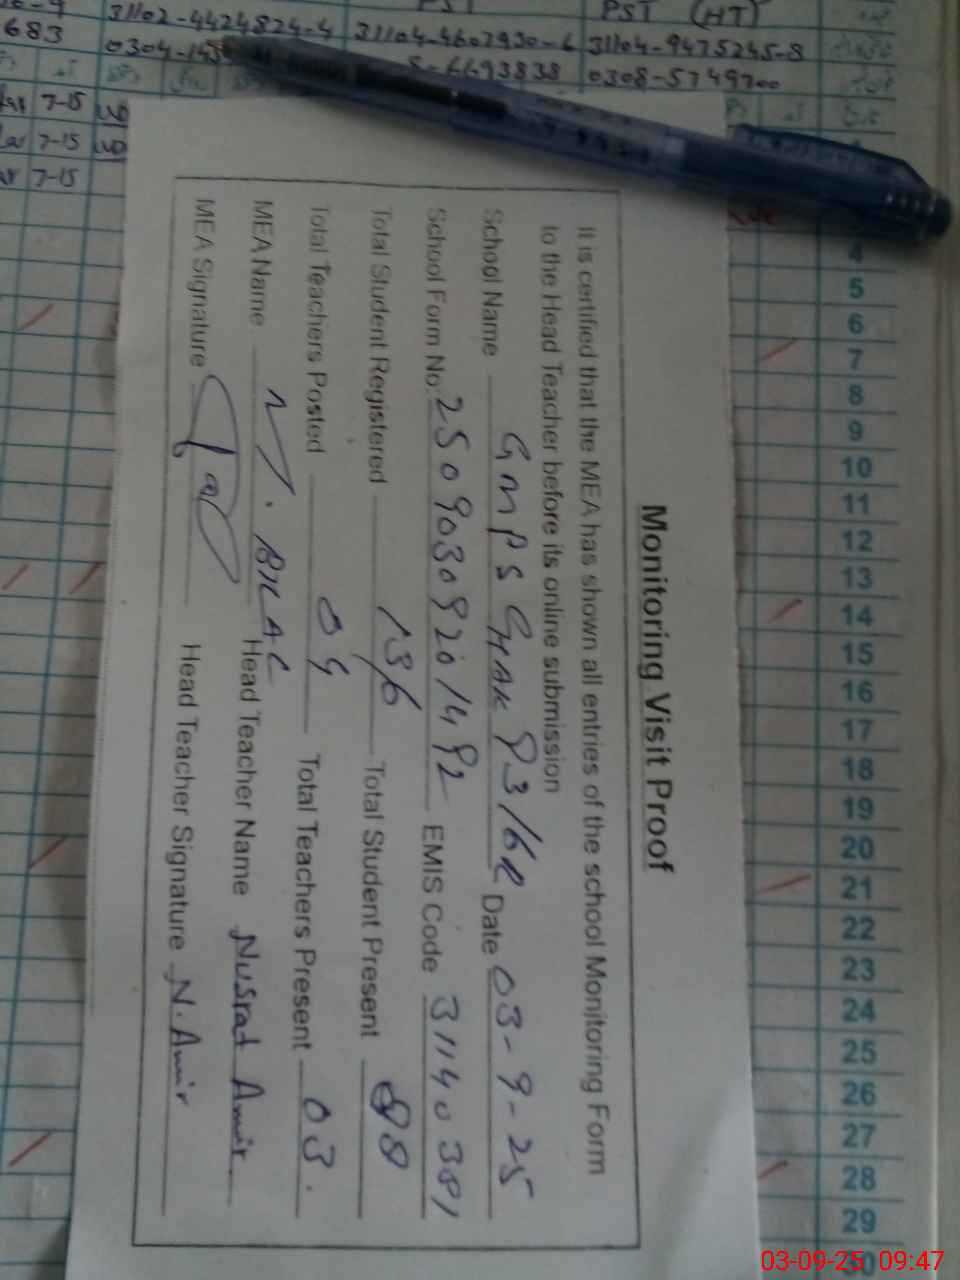 PST (HT)
683
31102-4424824-4
31104-4607930-6
31104-9475245-8
0304-145
8-6693838
0308-5749700
7-15
7-15
7-15
Monitoring Visit Proof
It is certified that the MEA has shown all entries of the school Monitoring Form
to the Head Teacher before its online submission
School Name GMPS CHAK 93/6R Date 03-9-25
School Form No. 25090309201492 EMIS Code 31140381
Total Student Registered 136 Total Student Present 88
Total Teachers Posted 04 Total Teachers Present 03.
MEA Name M. BILAL Head Teacher Name Nusrat Amir
MEA Signature Head Teacher Signature N. Amir
4
5
6
7
8
9
10
11
12
13
14
15
16
17
18
19
20
21
22
23
24
25
26
27
28
29
30
03-09-25 09:47